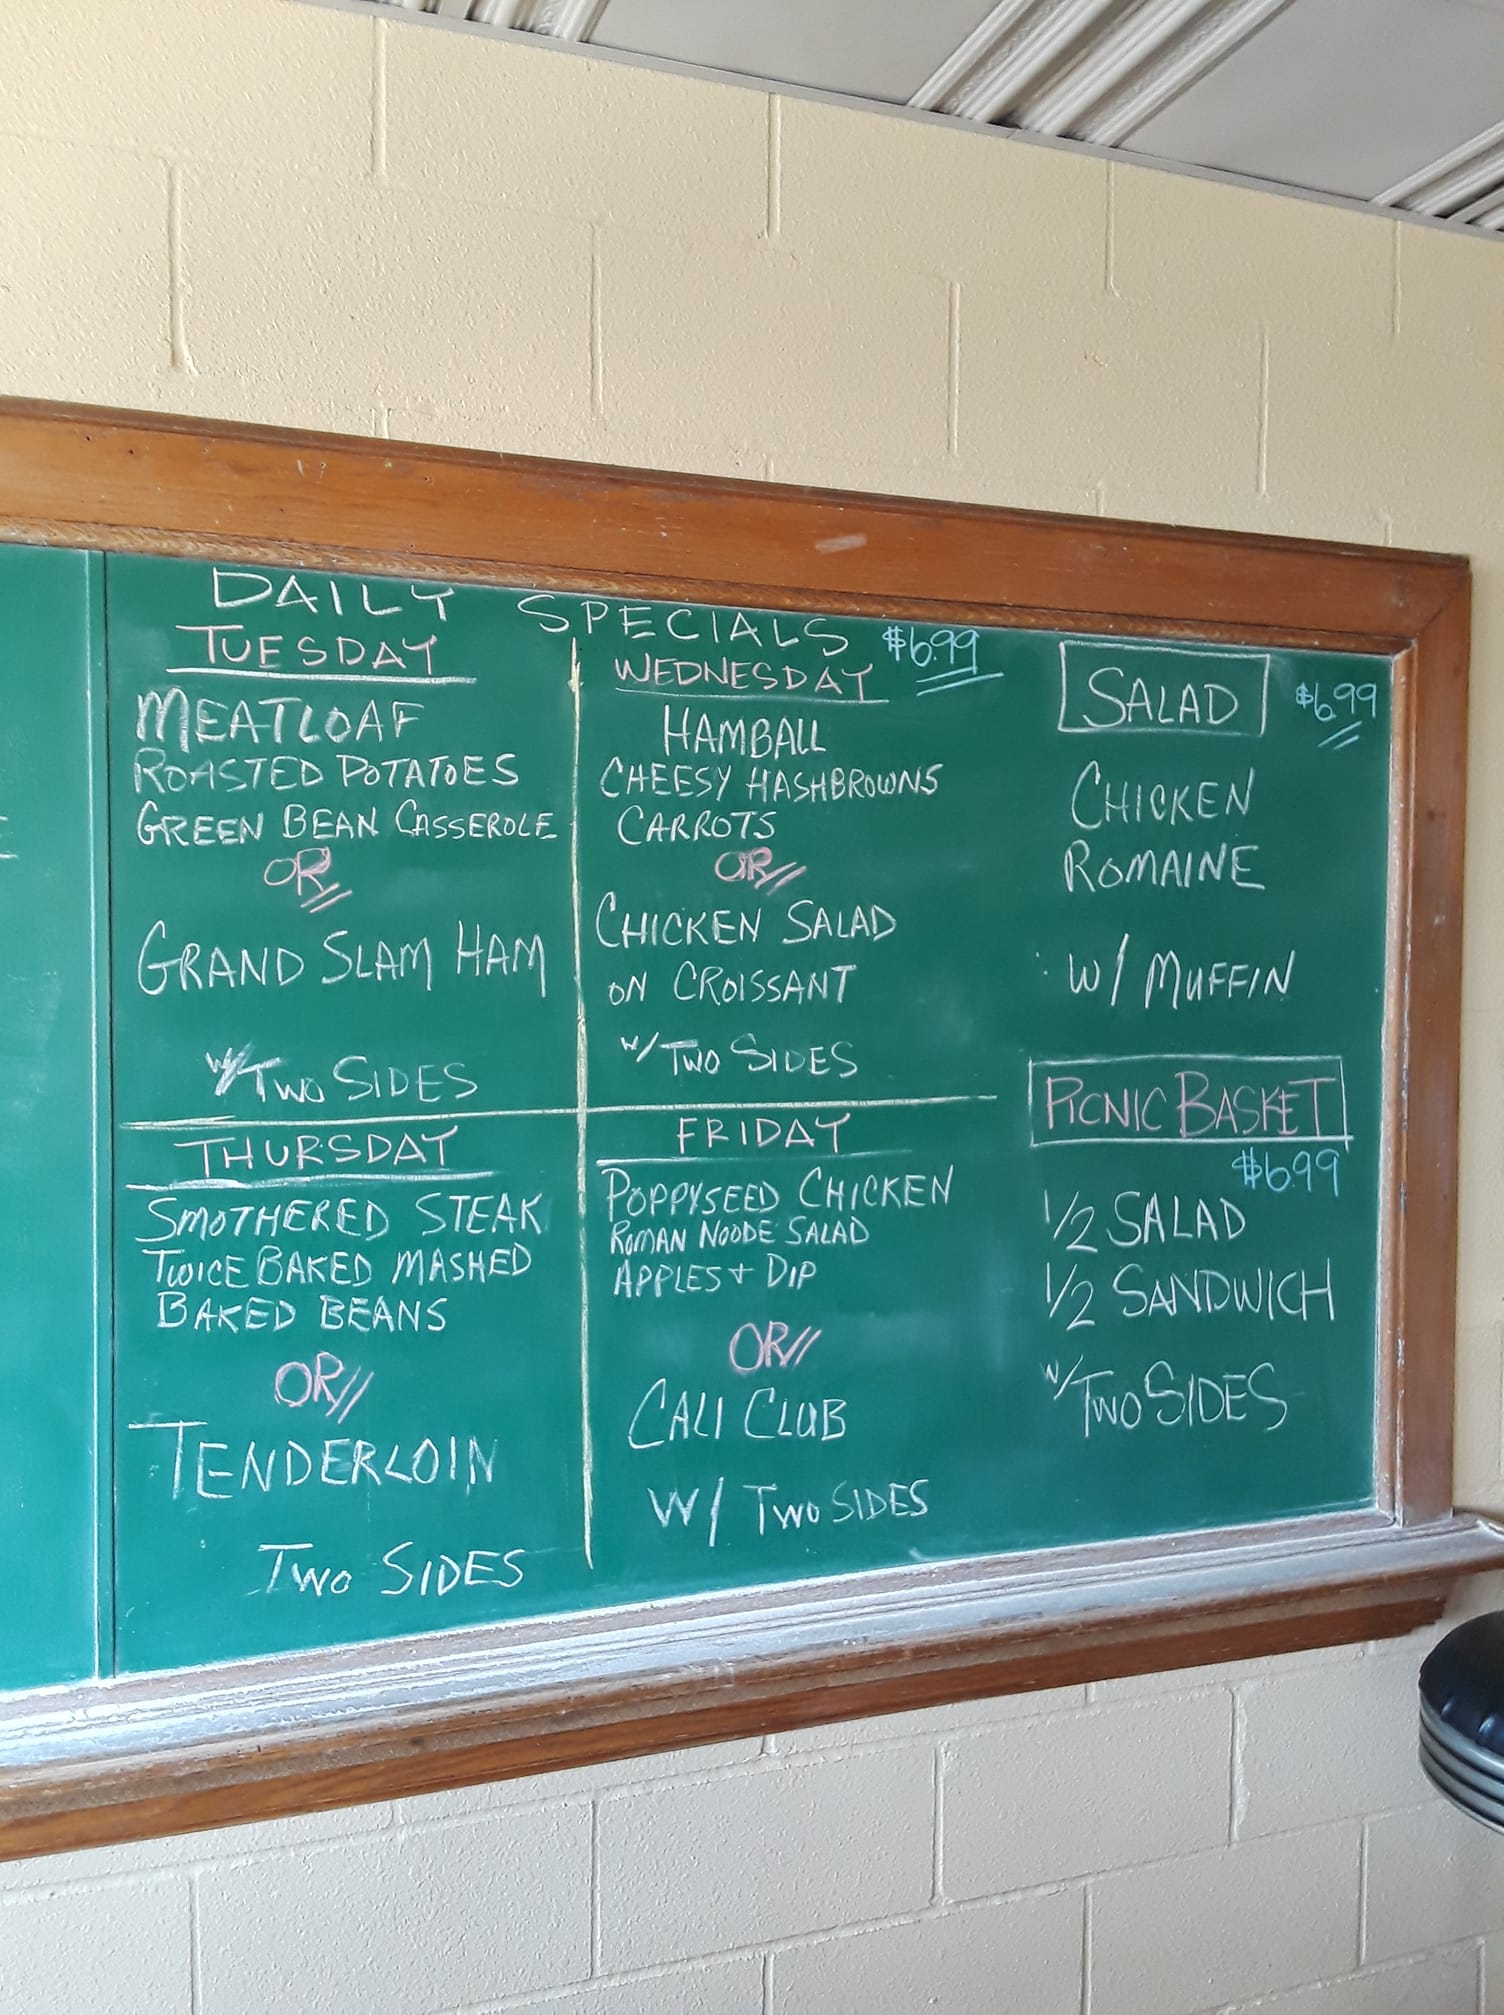 DAILY SPECIALS $6.99
TUESDAY
MEATLOAF
ROASTED POTATOES
GREEN BEAN CASSEROLE
OR
GRAND SLAM HAM
W/ TWO SIDES
WEDNESDAY
HAMBALL
CHEESY HASHBROWNS
CARROTS
OR
CHICKEN SALAD
ON CROISSANT
W/ TWO SIDES
THURSDAY
SMOTHERED STEAK
TWICE BAKED MASHED
BAKED BEANS
OR
TENDERLOIN
TWO SIDES
FRIDAY
POPPYSEED CHICKEN
ROMAN NOODE SALAD
APPLES + DIP
OR
CALI CLUB
W/ TWO SIDES
SALAD $6.99
CHICKEN
ROMAINE
W/ MUFFIN
PICNIC BASKET
$6.99
1/2 SALAD
1/2 SANDWICH
W/ TWO SIDES